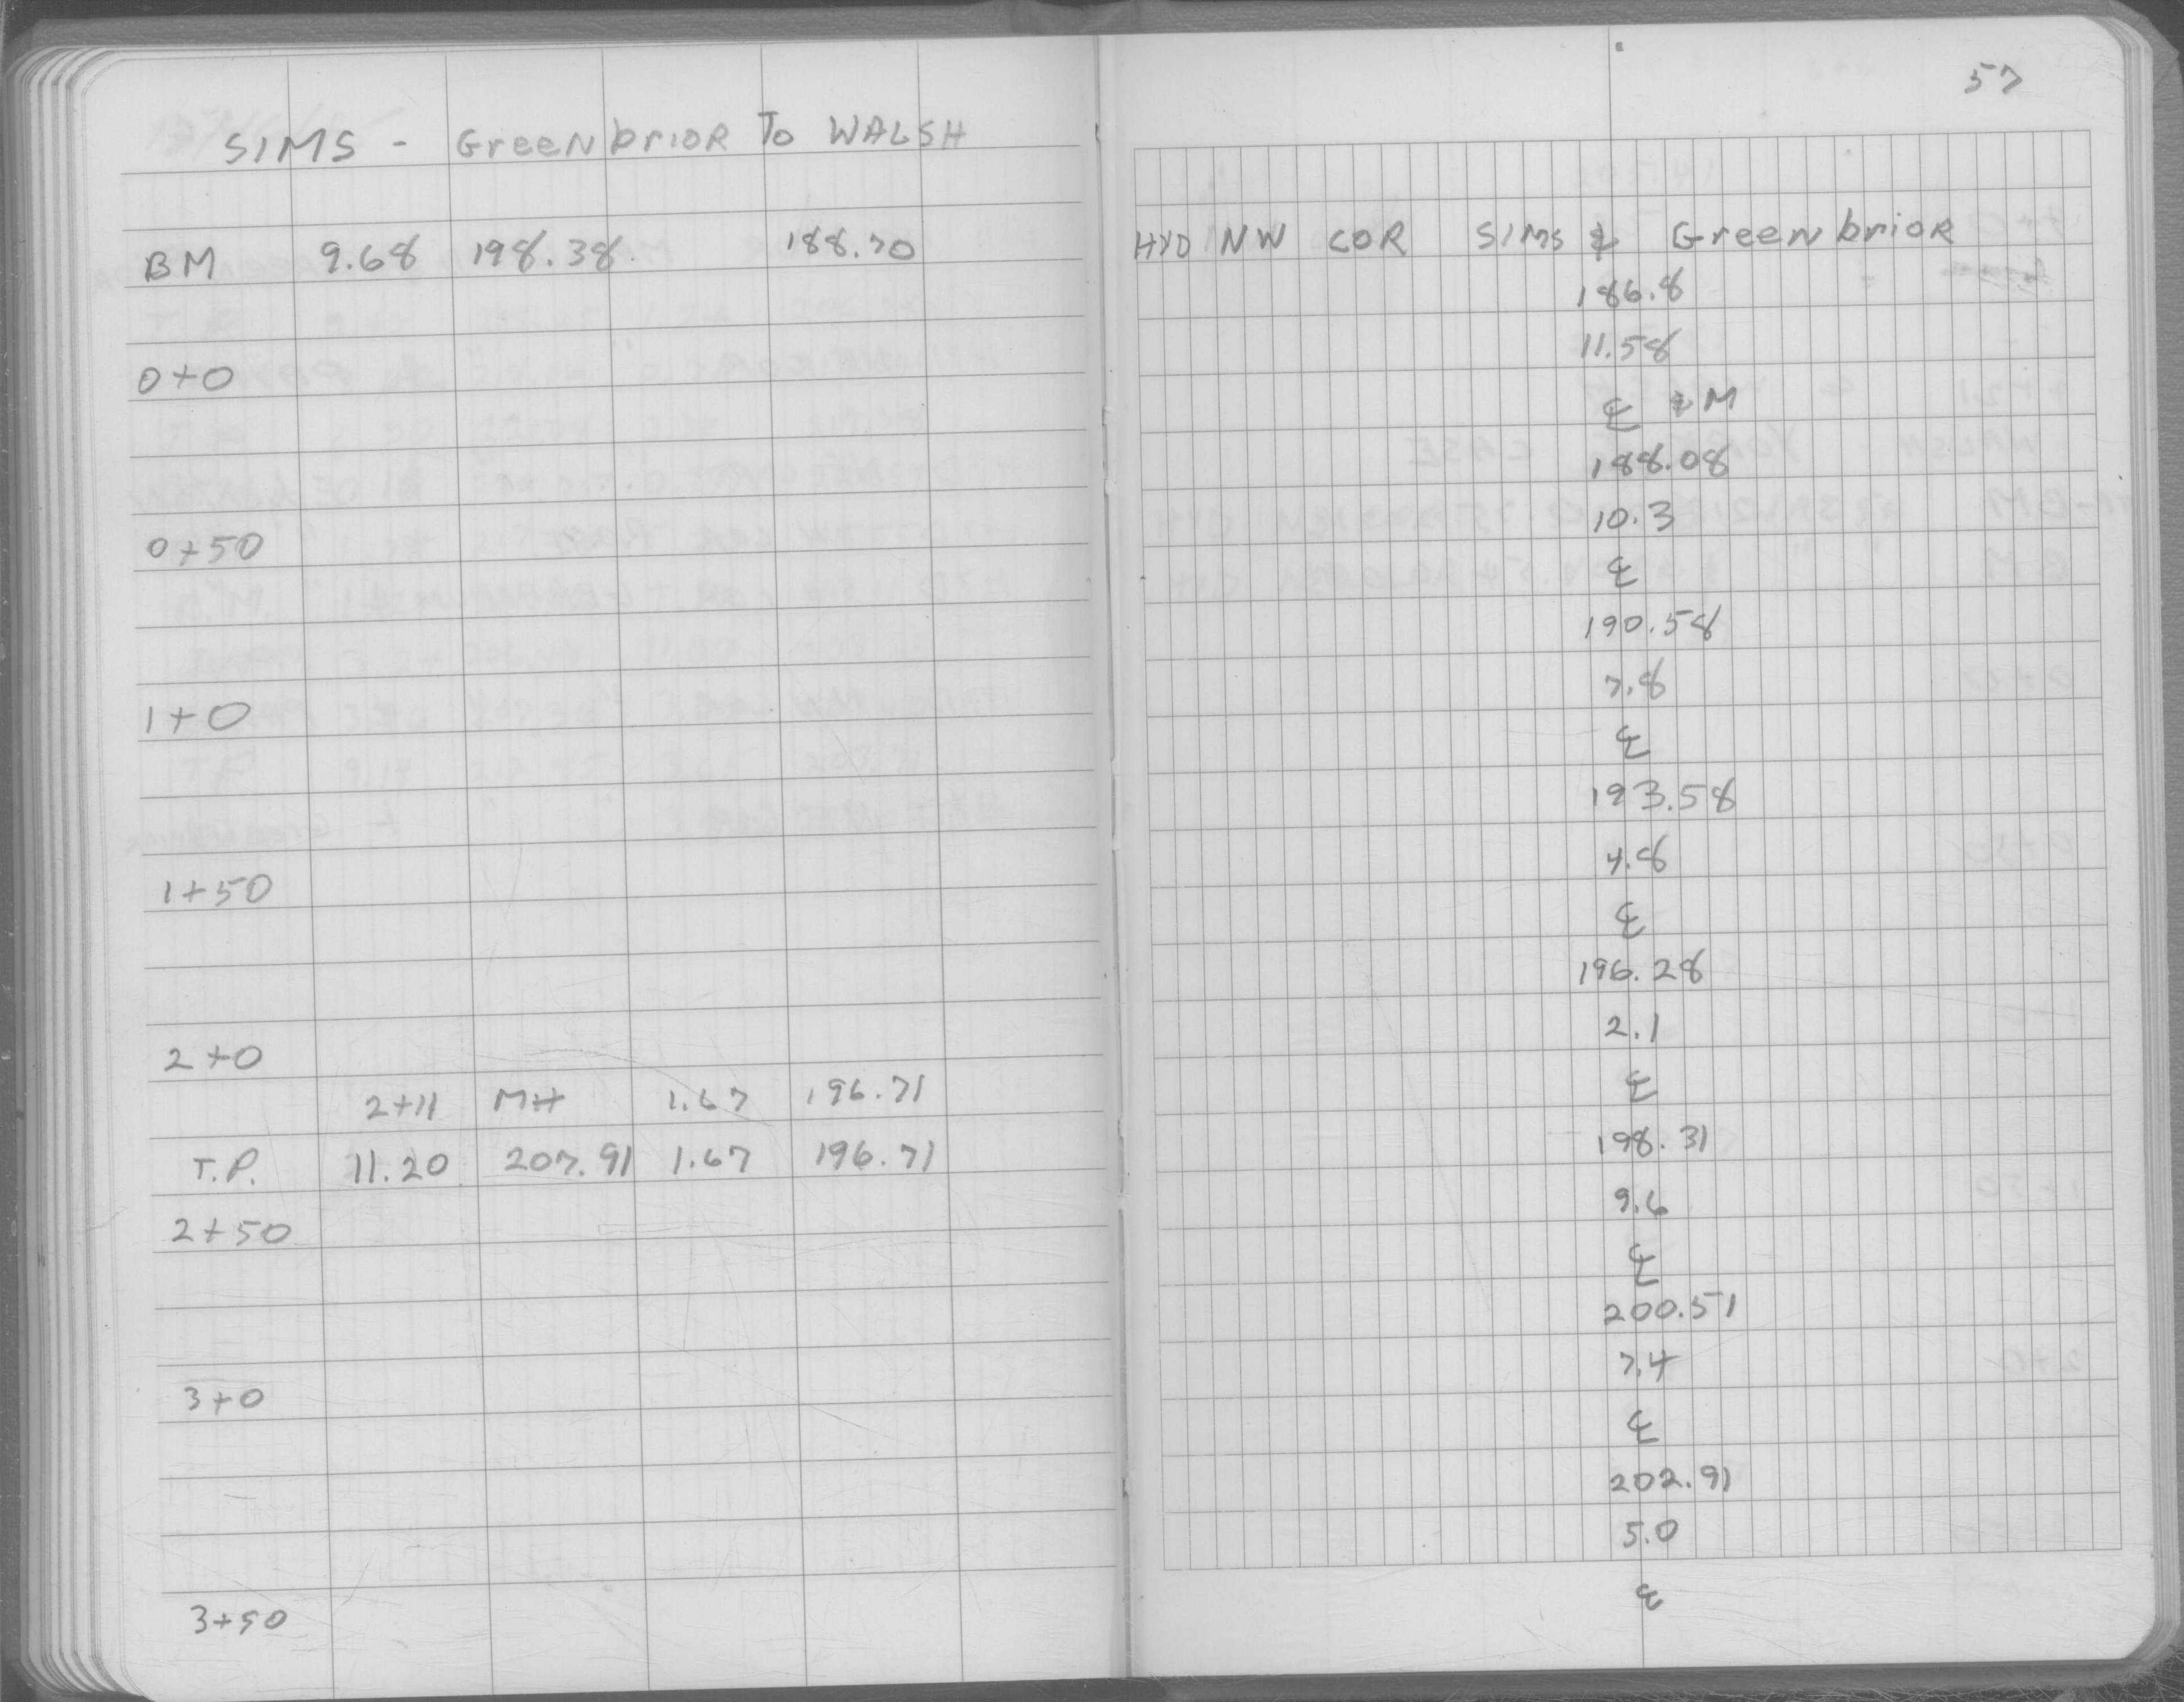 SIMS - Greenbrior To WALSH
BM 9.68 198.38 188.70
0+0
0+50
1+0
1+50
2+0
2+11 MH 1.67 196.71
T.P. 11.20 207.91 1.67 196.71
2+50
3+0
3+50
57
HYD NW COR SIMS & Greenbrior
186.8
11.58
℄ & M
188.08
10.3
℄
190.58
7.8
℄
193.58
4.8
℄
196.28
2.1
℄
198.31
9.6
℄
200.51
7.4
℄
202.91
5.0
℄